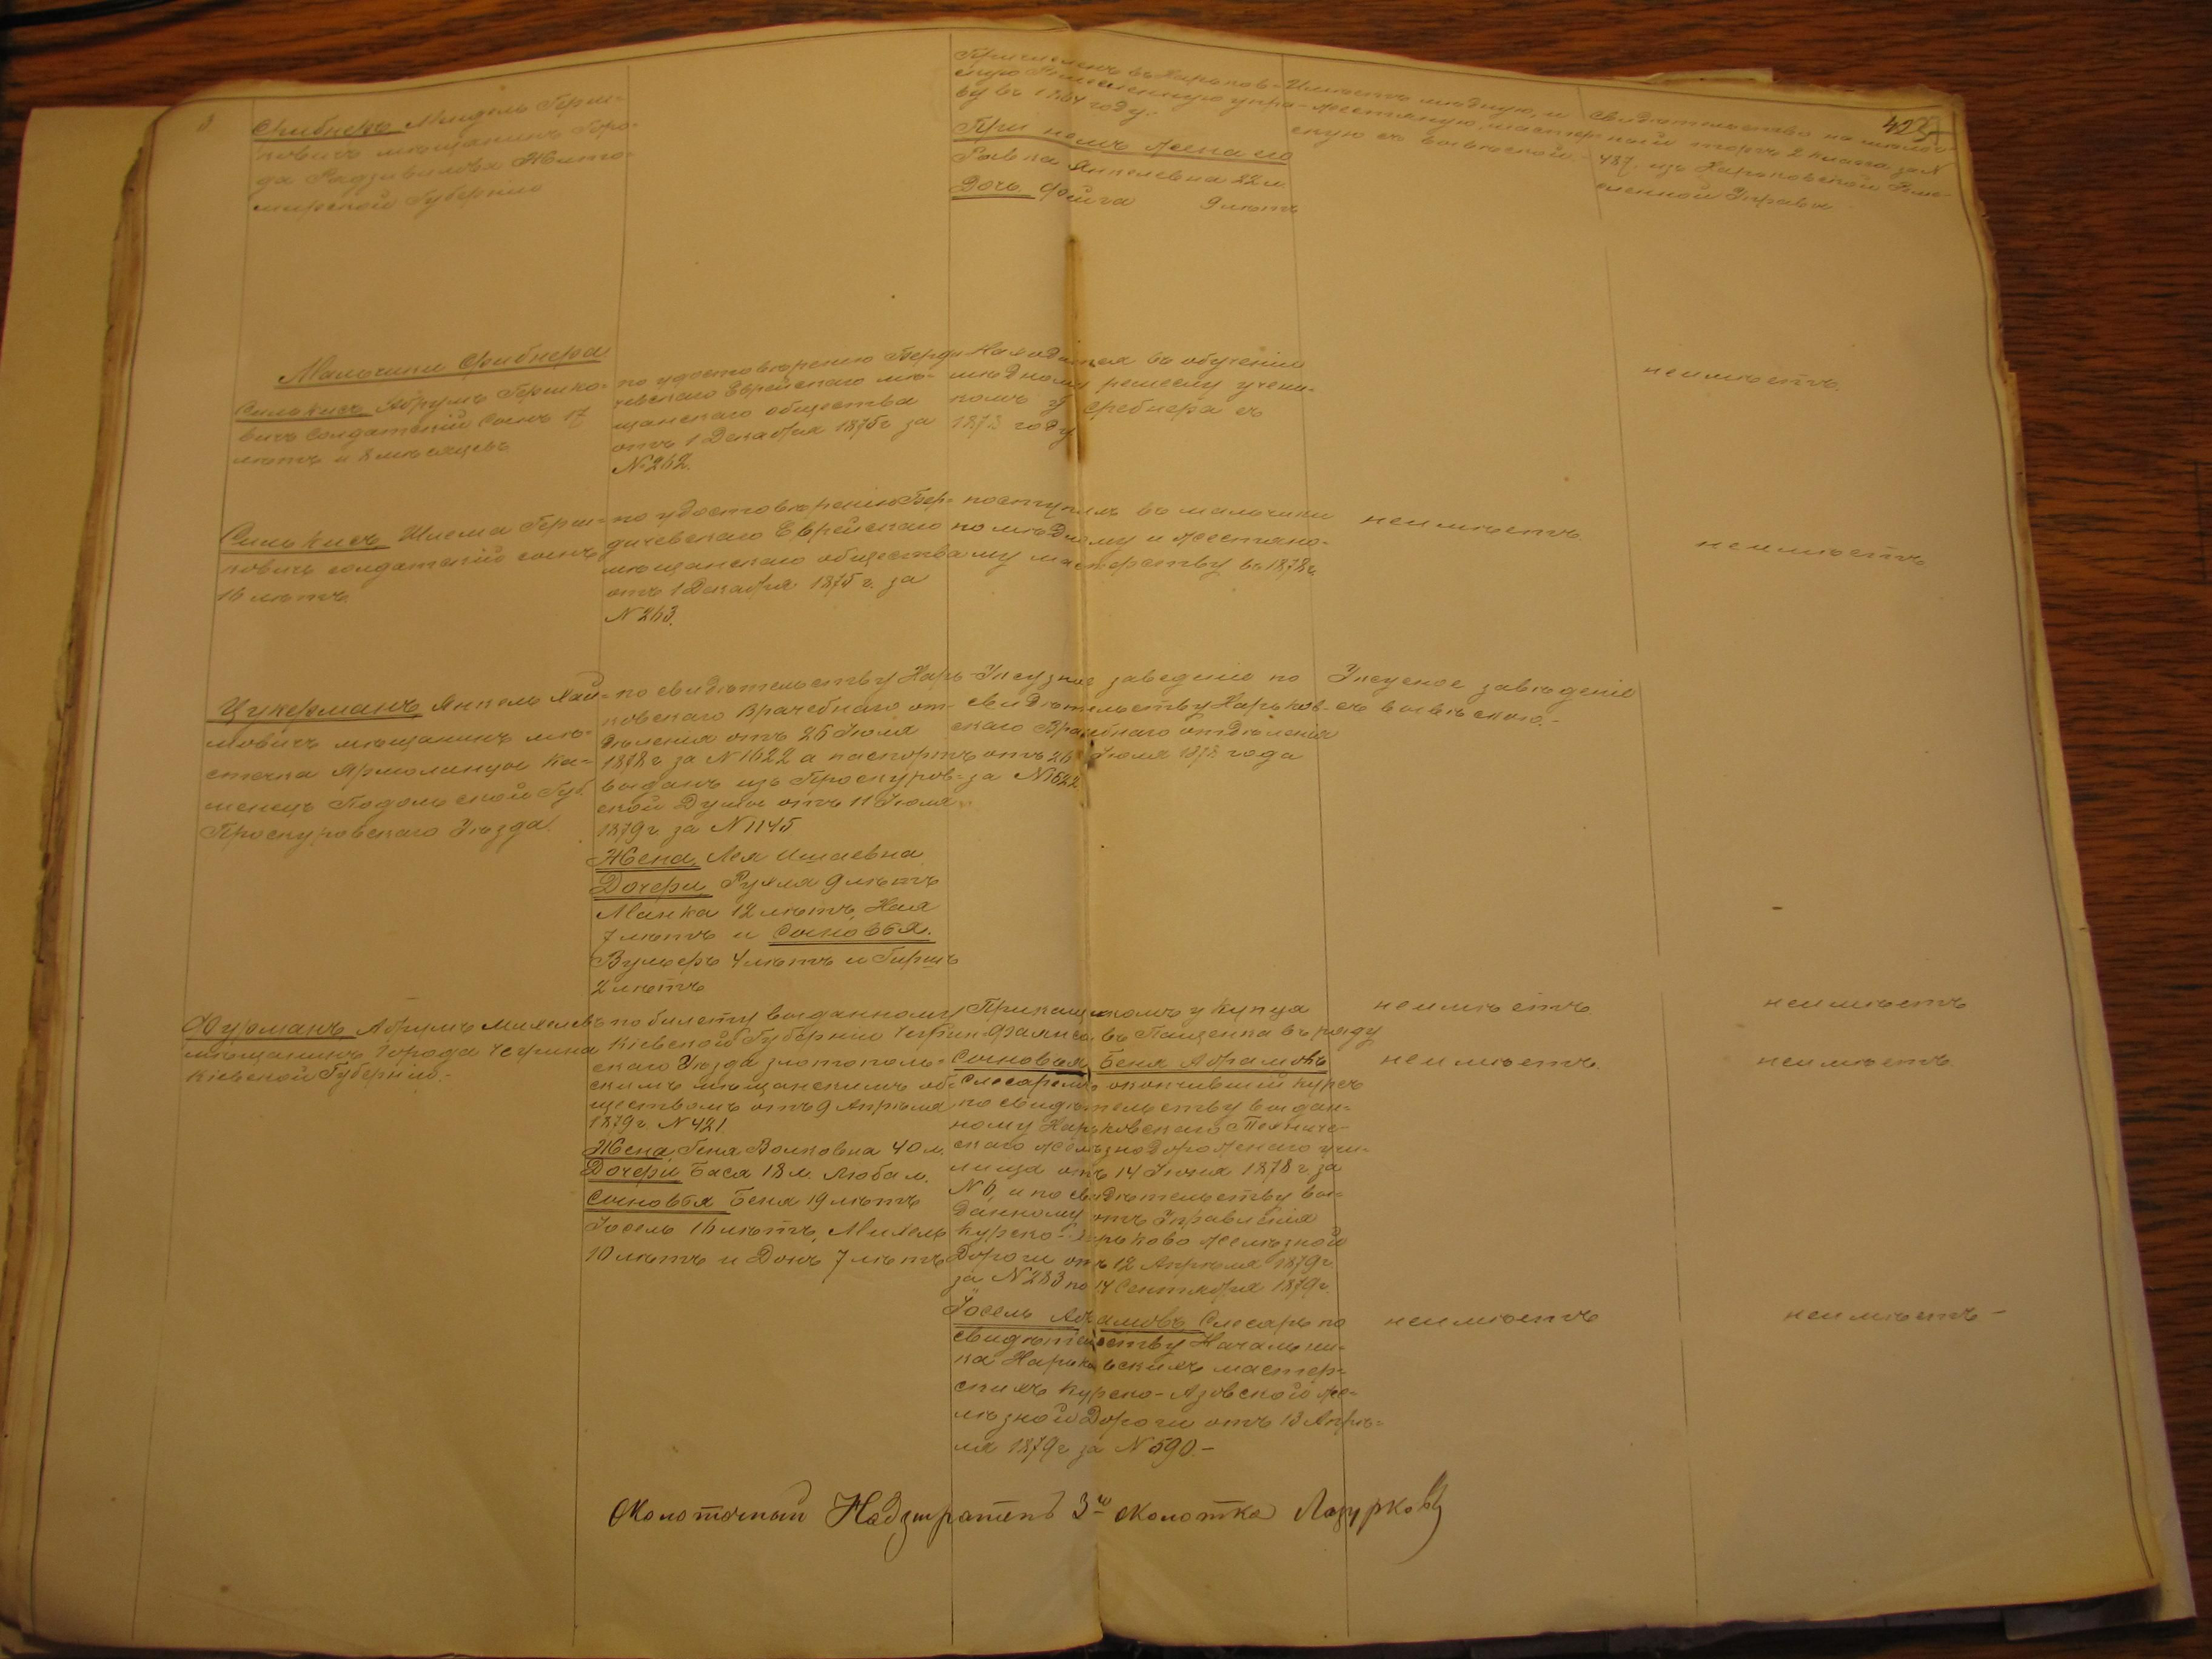 3
Сребнеръ Мендель Герш=
ковичъ мѣщанинъ Горо-
да Радзивилова Жито-
мирской Губерніи
Причисленъ въ Харьков-
скую Ремесленную упра-
ву въ 1864 году.
При немъ жена его
Ривка Янкелевна 22 л.
Дочь Фейга 9 лѣтъ
Имѣетъ мѣдную, и
жестяную мастер-
скую съ вывѣской
Свидѣтельство на мелоч-
ной торгъ 2 класса за №
487. изъ Харьковской Реме-
сленной Управы
423
Мальчики Сребнера
Силькисъ Абрумъ Гершко-
вичъ солдатскій сынъ 17
лѣтъ и 8 мѣсяцевъ
по удостовѣренію Берди-
чевскаго Еврейскаго мѣ-
щанскаго общества
отъ 1 Декабря 1875 г за
№ 262.
Находится въ обученіи
мѣдному ремеслу учени-
комъ у Сребнера съ
1873 году
неимѣетъ.
Силькисъ Шлема Герш=
ковичъ солдатскій сынъ
16 лѣтъ
по удостовѣренію Бер=
дичевскаго Еврейскаго
мѣщанскаго общества
отъ 1 Декабря 1875 г. за
№ 263.
поступилъ въ мальчики
по мѣдному и жестяно-
му мастерству въ 1878 г.
неимѣетъ
неимѣетъ
Цукерманъ Янкель Хаи=
мовичъ мѣщанинъ мѣ-
стечка Ярмолинцы Ка=
менец Подольской Губ.
Проскуровскаго Уѣзда.
по свидѣтельству Харь-
ковскаго Врачебнаго от-
дѣленія отъ 26 Іюля
1878 г за № 1622 а паспортъ
выданъ изъ Проскуров=
ской Думы отъ 11 Іюля
1879 г за № 1145
Жена, Лея Ишаевна
Дочери, Рухля 9 лѣтъ
Манка 12 лѣтъ, Хая
7 лѣтъ и Сыновья.
Вульфъ 4 лѣтъ и Гиршъ
2 лѣтъ
Уксусное заведеніе по
свидѣтельству Харьков-
скаго Врачебнаго отдѣленія
отъ 26 Іюля 1878 года
за № 1622
Уксусное заведеніе
съ вывѣскою.-
Фурманъ Абрумъ Михелевъ
мѣщанинъ города Чегрина
Кіевской Губерніи.-
по билету выданному
Кіевской Губерніи Чегрин-
скаго Уѣзда златополь=
скимъ мѣщанскимъ об=
ществомъ отъ 9 Апрѣля
1879 г. № 421.
Жена, Геня Волковна 40 л.
Дочери Бася 18 л. Люба л.
Сыновья Беня 19 лѣтъ
Іосель 16 лѣтъ, Михель
10 лѣтъ и Донъ 7 лѣтъ
Прикащикомъ у купца
въ Пащенка въ ряду
Сыновья, Беня Абрамовъ
Слесаремъ окончившій курсъ
по свидѣтельству выдан=
ному Харьковскаго Техниче-
скаго желѣзнодорожнаго учи-
лища отъ 14 Іюня 1878 г за
№ 6, и по свидѣтельству вы=
данному отъ Управленія
Курско-Харьково желѣзной
Дороги отъ 12 Апрѣля 1879 г
за № 283 по 14 Сентября 1879 г.
неимѣетъ
неимѣетъ
неимѣетъ
неимѣетъ
Іосель Абрамовъ Слесарь по
свидѣтельству Начальни-
ка Харьковскихъ мастер=
скихъ Курско-Азовской же-
лѣзной Дороги отъ 13 Апрѣ=
ля 1879 г за № 590.-
неимѣетъ
неимѣетъ -
Околоточный Надзиратель 3го околотка